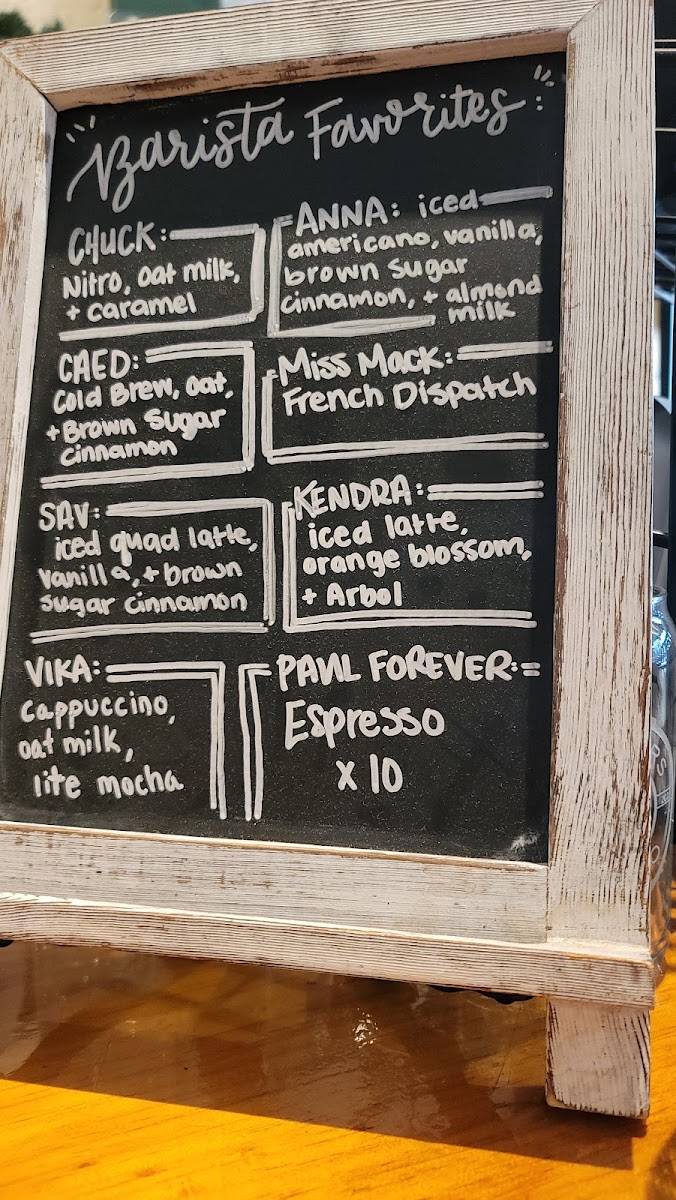 Barista Favorites:
CHUCK:
Nitro, oat milk,
+ caramel
ANNA: iced
americano, vanilla,
brown sugar
cinnamon, + almond
milk
CAED:
Cold Brew, oat,
+ Brown Sugar
cinnamon
Miss Mack:
French Dispatch
SAV:
iced quad latte,
vanilla, + brown
sugar cinnamon
KENDRA:
iced latte,
orange blossom,
+ Arbol
VIKA:
cappuccino,
oat milk,
lite mocha
PAUL FOREVER:
Espresso
x 10